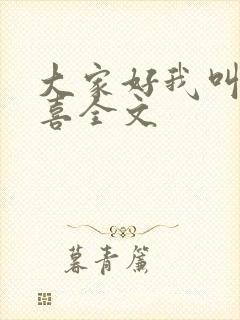 大家好我叫
喜全文
暮青簾